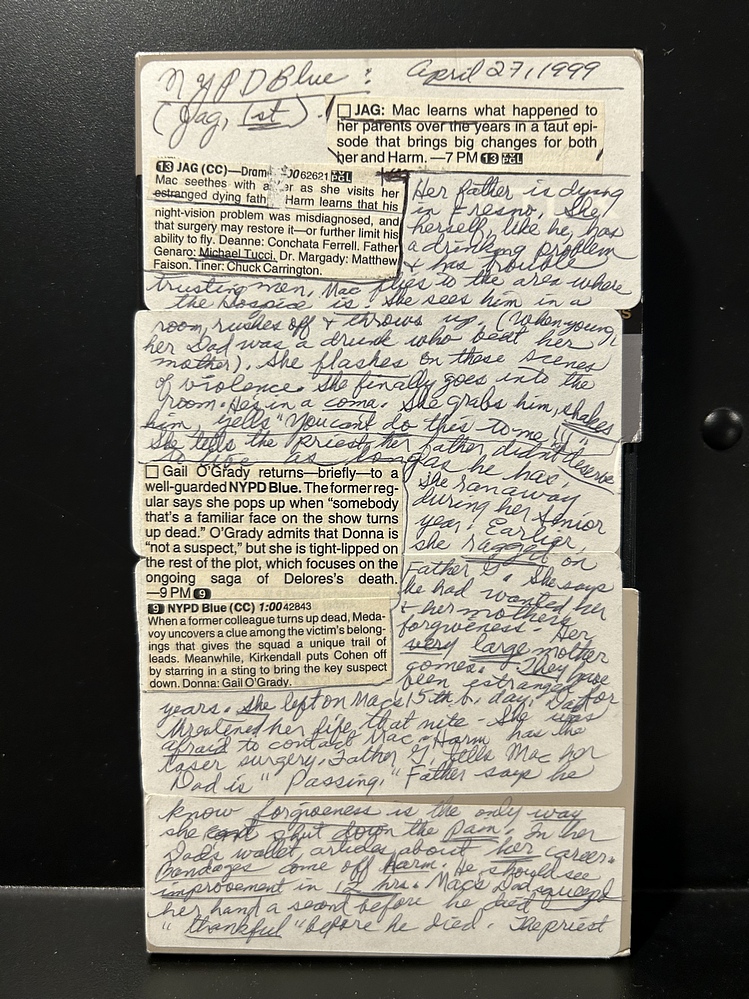 NYPD Blue: April 27, 1999
(Jag, 1st).
☐ JAG: Mac learns what happened to
her parents over the years in a taut epi-
sode that brings big changes for both
her and Harm. —7 PM 13
13 JAG (CC)—Dram 00 62621
Mac seethes with a er as she visits her
estranged dying fath Harm learns that his
night-vision problem was misdiagnosed, and
that surgery may restore it—or further limit his
ability to fly. Deanne: Conchata Ferrell. Father
Genaro: Michael Tucci. Dr. Margady: Matthew
Faison. Tiner: Chuck Carrington.
Her father is dying
in Fresno. She
herself, like he, has
a drinking problem
& has trouble
trusting men. Mac flies to the area where
the hospice is. She sees him in a
room, rushes off & throws up. (When young,
her Dad was a drunk who beat her
mother). She flashes on these scenes
of violence. She finally goes into the
room. He's in a coma. She grabs him, shakes
him, yells "You can't do this to me!!"
She tells the priest, her father didn't deserve
as long as he has.
☐ Gail O'Grady returns—briefly—to a
well-guarded NYPD Blue. The former reg-
ular says she pops up when "somebody
that's a familiar face on the show turns
up dead." O'Grady admits that Donna is
"not a suspect," but she is tight-lipped on
the rest of the plot, which focuses on the
ongoing saga of Delores's death.
—9 PM 9
9 NYPD Blue (CC) 1:00 42843
When a former colleague turns up dead, Meda-
voy uncovers a clue among the victim's belong-
ings that gives the squad a unique trail of
leads. Meanwhile, Kirkendall puts Cohen off
by starring in a sting to bring the key suspect
down. Donna: Gail O'Grady.
She ran away
during her senior
year. Earlier,
she ragged on
Father G. She says
he had wanted her
& her mothers
forgiveness. Her
very large mother
comes. They have
been estranged for
years. She left on Mac's 15th b. day. Dad
threatened her life that nite - She was
afraid to contact Mac. Harm has the
laser surgery. Father G. tells Mac her
Dad is "Passing." Father says he
know forgiveness is the only way
she can't shut down the pain. In her
Dad's wallet, articles about her career.
Bandages come off Harm. He should see
improvement in 12 hrs. Mac's Dad squeezed
her hand a second before he died
"thankful" before he died. The priest